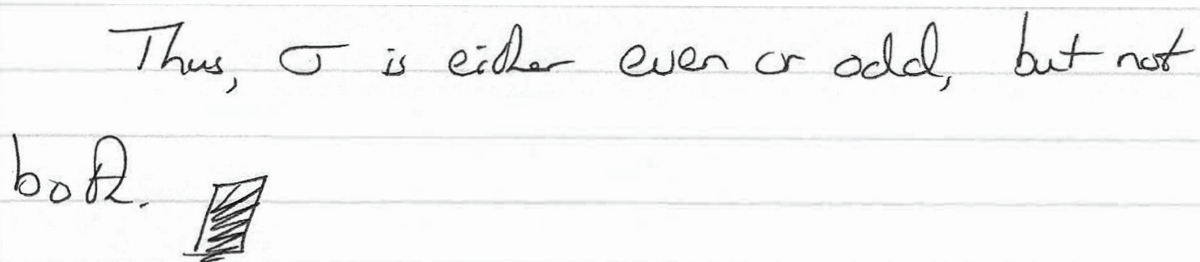 Thus, σ is either even or odd, but not
both. ∎